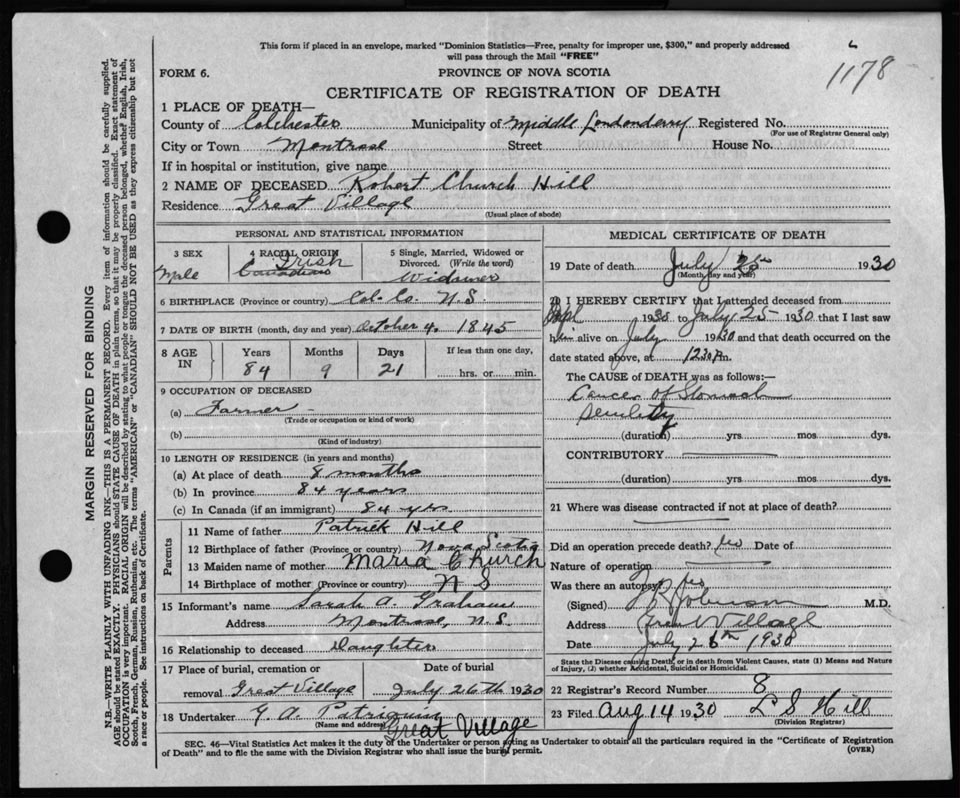 This form if placed in an envelope, marked "Dominion Statistics—Free, penalty for improper use, $300," and properly addressed
will pass through the Mail "FREE"
1178
FORM 6.
PROVINCE OF NOVA SCOTIA
CERTIFICATE OF REGISTRATION OF DEATH
1 PLACE OF DEATH—
County of Colchester Municipality of Middle Londonderry Registered No.
(For use of Registrar General only)
City or Town Montrose Street House No.
If in hospital or institution, give name
2 NAME OF DECEASED Robert Church Hill
Residence Great Village
(Usual place of abode)
PERSONAL AND STATISTICAL INFORMATION
3 SEX
Male
4 RACIAL ORIGIN
Irish
Canadian
5 Single, Married, Widowed or
Divorced. (Write the word)
Widower
6 BIRTHPLACE (Province or country) Col. Co. N.S.
7 DATE OF BIRTH (month, day and year) October 4. 1845
8 AGE IN
Years Months Days If less than one day,
84 9 21 hrs. or min.
9 OCCUPATION OF DECEASED
(a) Farmer
(Trade or occupation or kind of work)
(b)
(Kind of industry)
10 LENGTH OF RESIDENCE (in years and months)
(a) At place of death 8 months
(b) In province 84 years
(c) In Canada (if an immigrant) 84 yrs.
Parents
11 Name of father Patrick Hill
12 Birthplace of father (Province or country) Nova Scotia
13 Maiden name of mother Maria Church
14 Birthplace of mother (Province or country) N S
15 Informant's name Sarah A. Graham
Address Montrose, N.S.
16 Relationship to deceased Daughter
17 Place of burial, cremation or Date of burial
removal Great Village July 26th 1930
18 Undertaker G A. Patriquin
(Name and address) Great Village
MEDICAL CERTIFICATE OF DEATH
19 Date of death July 25th 1930
(Month, day and year)
20 I HEREBY CERTIFY that I attended deceased from
1930 to July 25 1930 that I last saw
him alive on July 1930 and that death occurred on the
date stated above, at 12:30 P.m.
The CAUSE of DEATH was as follows:—
Cancer of Stomach
Senility
(duration) yrs mos dys.
CONTRIBUTORY
(duration) yrs mos dys.
21 Where was disease contracted if not at place of death?
Did an operation precede death? Date of
Nature of operation
Was there an autopsy?
(Signed) Johnson M.D.
Address Great Village
Date July 26th 1930
State the Disease causing Death, or in death from Violent Causes, state (1) Means and Nature
of Injury, (2) whether Accidental, Suicidal or Homicidal.
22 Registrar's Record Number 8
23 Filed Aug 14 1930 L S Hill
(Division Registrar)
SEC. 46—Vital Statistics Act makes it the duty of the Undertaker or person acting as Undertaker to obtain all the particulars required in the "Certificate of Registration
of Death" and to file the same with the Division Registrar who shall issue the burial permit.
(OVER)
MARGIN RESERVED FOR BINDING
N.B.—WRITE PLAINLY WITH UNFADING INK—THIS IS A PERMANENT RECORD. Every item of information should be carefully supplied.
AGE should be stated EXACTLY. PHYSICIANS should STATE CAUSE OF DEATH in plain terms, so that it may be properly classified. Exact statement of
OCCUPATION is very important. RACIAL ORIGIN will be described by stating to what people or tongue the deceased person belonged, whether English, Irish,
Scotch, French, German, Russian, Ruthenian, etc. The terms "AMERICAN" or "CANADIAN" SHOULD NOT BE USED as they express citizenship but not
a race or people. See instructions on back of Certificate.